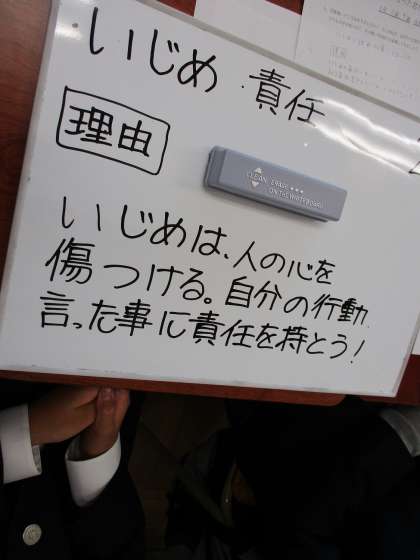 いじめ・責任
理由
CLEAN ERASE
ON the WHITEBOARD
いじめは、人の心を
傷つける。自分の行動、
言った事に責任を持とう!